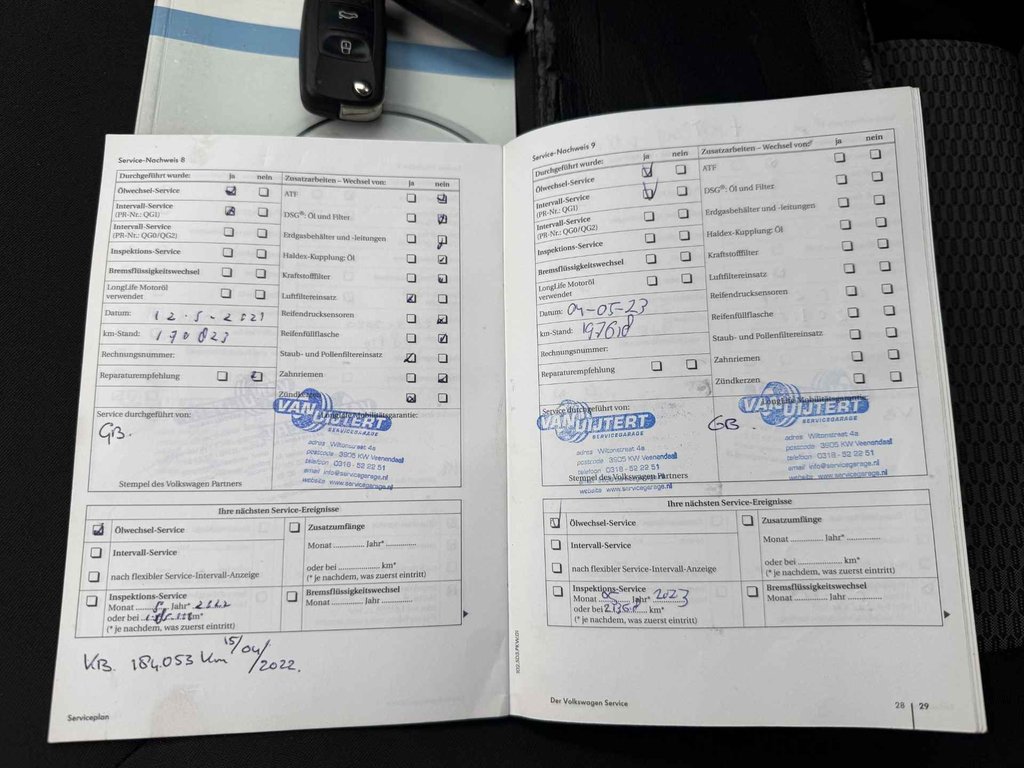 Service-Nachweis 8
Durchgeführt wurde: ja nein
Ölwechsel-Service
Intervall-Service
(PR-Nr.: QG1)
Intervall-Service
(PR-Nr.: QG0/QG2)
Inspektions-Service
Bremsflüssigkeitswechsel
LongLife Motoröl
verwendet
Datum: 12-5-2021
km-Stand: 170823
Rechnungsnummer:
Reparaturempfehlung
Zusatzarbeiten – Wechsel von: ja nein
ATF
DSG®: Öl und Filter
Erdgasbehälter und -leitungen
Haldex-Kupplung: Öl
Kraftstofffilter
Luftfiltereinsatz
Reifendrucksensoren
Reifenfüllflasche
Staub- und Pollenfiltereinsatz
Zahnriemen
Zündkerzen
Service durchgeführt von:
GB.
Stempel des Volkswagen Partners
LongLife Mobilitätsgarantie:
VAN UIJTERT
SERVICEGARAGE
adres Wiltonstraat 4a
postcode 3905 KW Veenendaal
telefoon 0318 - 52 22 51
email info@servicegarage.nl
website www.servicegarage.nl
Ihre nächsten Service-Ereignisse
Ölwechsel-Service
Intervall-Service
nach flexibler Service-Intervall-Anzeige
Inspektions-Service
Monat 5 Jahr* 2022
oder bei km*
(* je nachdem, was zuerst eintritt)
Zusatzumfänge
Monat ............. Jahr* .............
oder bei ............. km*
(* je nachdem, was zuerst eintritt)
Bremsflüssigkeitswechsel
Monat ............. Jahr .............
KB. 184.053 Km 15/04/2022.
Serviceplan
Service-Nachweis 9
Durchgeführt wurde: ja nein
Ölwechsel-Service
Intervall-Service
(PR-Nr.: QG1)
Intervall-Service
(PR-Nr.: QG0/QG2)
Inspektions-Service
Bremsflüssigkeitswechsel
LongLife Motoröl
verwendet
Datum: 04-05-23
km-Stand:
Rechnungsnummer:
Reparaturempfehlung
Zusatzarbeiten – Wechsel von: ja nein
ATF
DSG®: Öl und Filter
Erdgasbehälter und -leitungen
Haldex-Kupplung: Öl
Kraftstofffilter
Luftfiltereinsatz
Reifendrucksensoren
Reifenfüllflasche
Staub- und Pollenfiltereinsatz
Zahnriemen
Zündkerzen
Service durchgeführt von:
VAN UIJTERT
SERVICEGARAGE
adres Wiltonstraat 4a
postcode 3905 KW Veenendaal
telefoon 0318 - 52 22 51
email info@servicegarage.nl
Stempel des Volkswagen Partners
website www.servicegarage.nl
LongLife Mobilitätsgarantie:
GB.
VAN UIJTERT
SERVICEGARAGE
adres Wiltonstraat 4a
postcode 3905 KW Veenendaal
telefoon 0318 - 52 22 51
email info@servicegarage.nl
website www.servicegarage.nl
Ihre nächsten Service-Ereignisse
Ölwechsel-Service
Intervall-Service
nach flexibler Service-Intervall-Anzeige
Inspektions-Service
Monat Jahr* 2023
oder bei km*
(* je nachdem, was zuerst eintritt)
Zusatzumfänge
Monat ............. Jahr* .............
oder bei ............. km*
(* je nachdem, was zuerst eintritt)
Bremsflüssigkeitswechsel
Monat ............. Jahr .............
Der Volkswagen Service
28 | 29